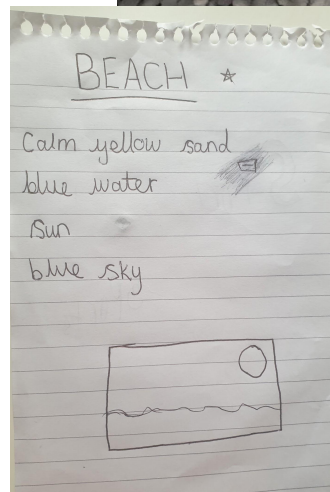 BEACH
Calm yellow sand
blue water
sun
blue sky